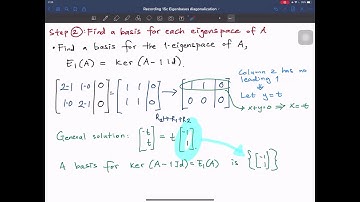 Recording 15c Eigenbases diagonalization
Step ②: Find a basis for each eigenspace of A
• Find a basis for the 1-eigenspace of A,
E₁(A) = ker(A-1Id).
[2-1 1-0 | 0] = [1 1 | 0] → [1 1 | 0]
[1-0 2-1 | 0] [1 1 | 0] [0 0 | 0]
Column 2 has no
leading 1
→ Let y=t
→ x+y=0 ⇒ x=-t
General solution: [-t t] = t [-1 1]
A basis for ker(A-1Id)=E₁(A) is {[-1 1]}